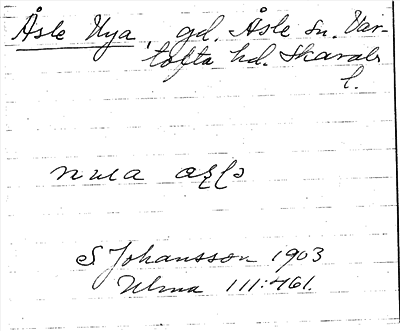 Åsle Nya, gd. Åsle sn. Var-
tofta hd. Skarab.
l.
nwa
S Johansson 1903
Ulma 111:461.